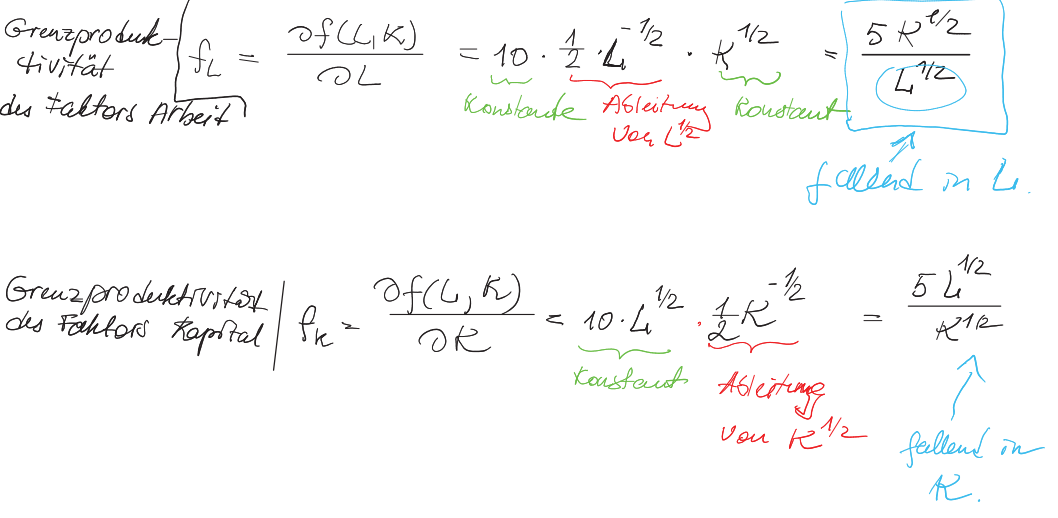 Grenzproduk-
tivität
des Faktors Arbeit
f_L = ∂f(L,K)/∂L = 10 · 1/2 · L^-1/2 · K^1/2 = 5 K^1/2 / L^1/2
Konstante Ableitung Konstant
von L^1/2
fallend in L.
Grenzproduktivität
des Faktors Kapital
f_K = ∂f(L,K)/∂K = 10 · L^1/2 · 1/2 K^-1/2 = 5 L^1/2 / K^1/2
Konstant Ableitung
von K^1/2
fallend in
K.